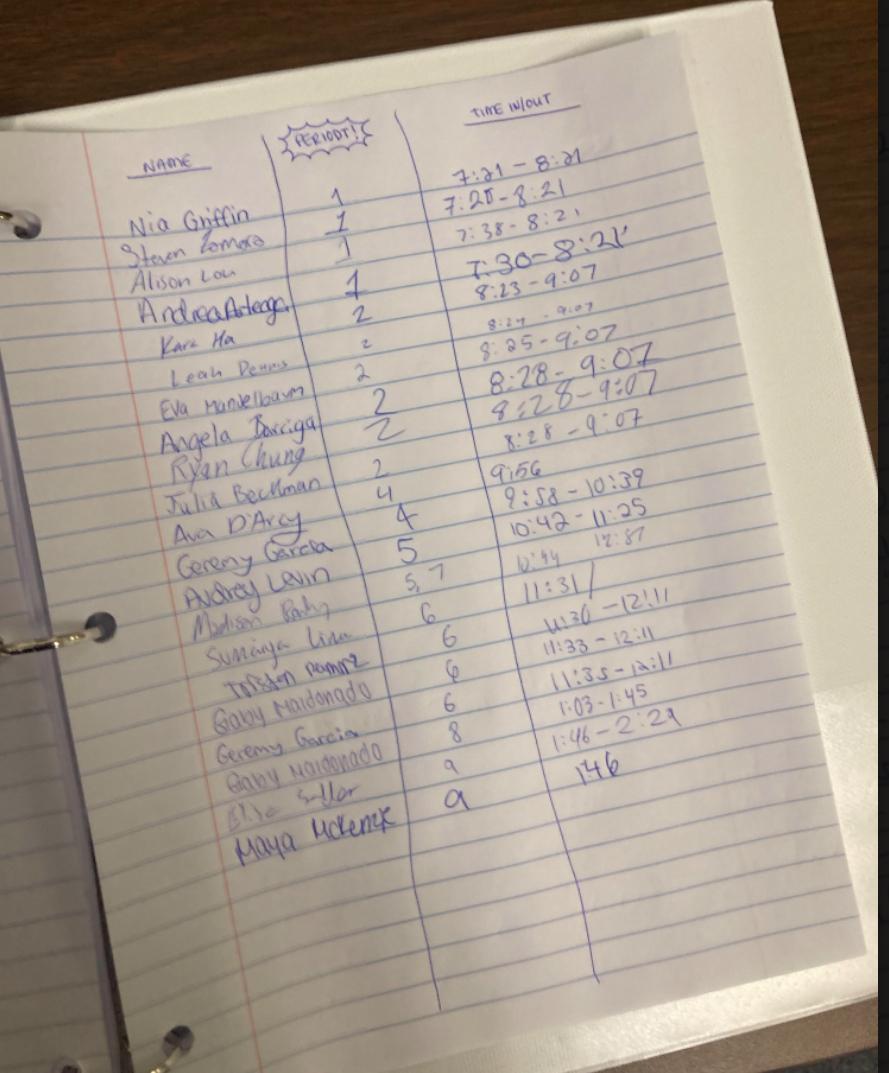 NAME PERIODT! TIME IN/OUT
Nia Griffin 1 7:21 - 8:21
Steven Zamora 1 7:25 - 8:21
Alison Lou 1 7:38 - 8:21
Andrea Arteaga 1 7:30 - 8:21
Kara Ha 2 8:23 - 9:07
Leah Dennis 2 8:24 - 9:07
Eva Mandelbaum 2 8:25 - 9:07
Angela Barriga 2 8:28 - 9:07
Ryan Chung 2 8:28 - 9:07
Julia Beckman 2 8:28 - 9:07
Ava D'Arcy 4 9:56
Geremy Garcia 4 9:58 - 10:39
Audrey Levin 5 10:42 - 11:25
Madison 5, 7 10:44
Sumaiya 6 11:31 /
6 11:30 - 12:11
Gaby Maldonado 6 11:33 - 12:11
Geremy Garcia 6 11:35 - 12:11
Gaby Maldonado 8 1:03 - 1:45
9 1:46 - 2:29
Maya McKenzie 9 1:46